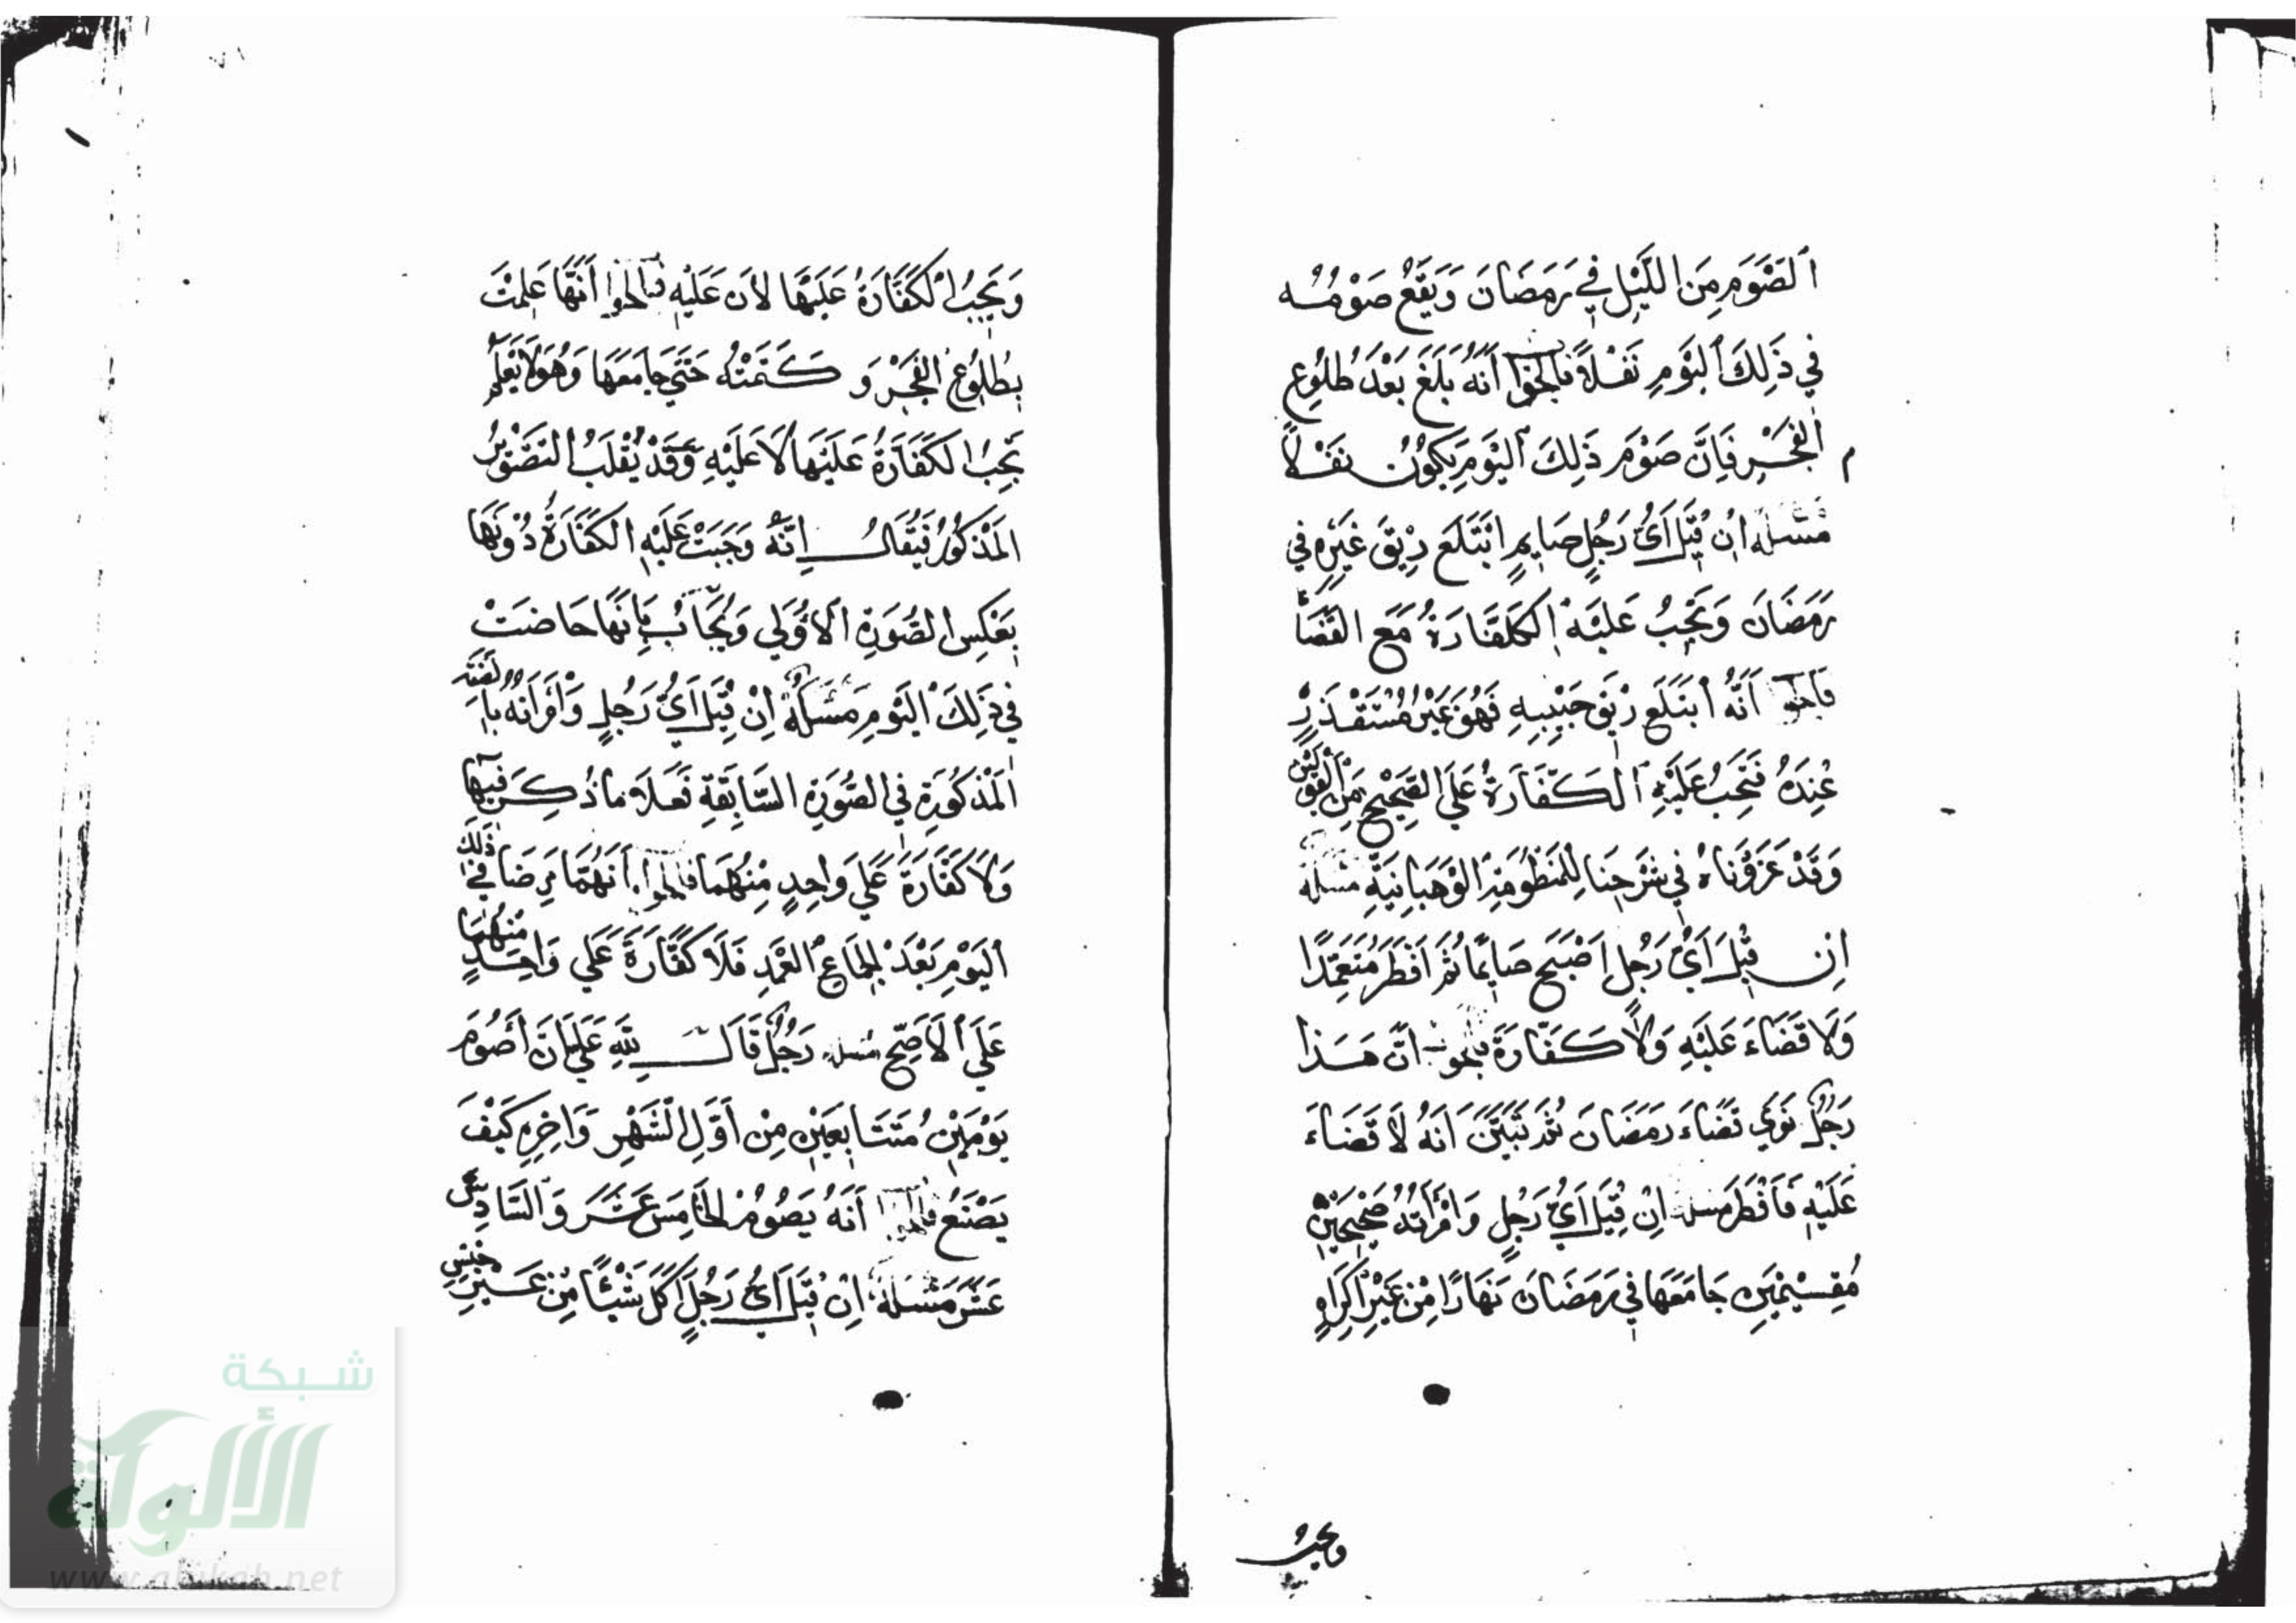 الصَّوْمِ مِنَ اللَّيْلِ فِي رَمَضَانَ وَيَقَعُ صَوْمُه
فِي ذَلِكَ الْيَوْمِ نَفْلًا فَالجَوَابُ أَنَّهُ بَلَغَ بَعْدَ طُلُوعِ
الْفَجْرِ فَإِنَّ صَوْمَ ذَلِكَ الْيَوْمِ يَكُونُ نَفْلًا
مَسْئَلَة اِنْ قِيلَ أَيُّ رَجُلٍ صَايِمٍ ابْتَلَعَ رِيْقَ غَيْرِهِ فِي
رَمَضَانَ وَتَجِبُ عَلَيْهِ الْكَفَّارَةُ مَعَ القَضَآءِ
فَالجَوَابُ أَنَّهُ ابْتَلَعَ رِيْقَ حَبِيْبِهِ فَهُوَ غَيْرُ مُسْتَقْذَرٍ
عِنْدَهُ فَتَجِبُ عَلَيْهِ الْكَفَّارَةُ عَلَى الصَّحِيْحِ مِنَ الْقَوْلَيْنِ
وَقَدْ عَزَوْنَاهُ فِي شَرْحِنَا لِلْمَنْظُومَةِ الْوَهْبَانِيَّةِ مَسْئَلَة
اِنْ قِيلَ أَيُّ رَجُلٍ اَصْبَحَ صَايِمًا ثُمَّ اَفْطَرَ مُتَعَمِّدًا
وَلَا قَضَاءَ عَلَيْهِ وَلَا كَفَّارَةَ فَالجَوَاب اَنَّ هَذَا
رَجُلٌ نَوَي قَضَاءَ رَمَضَانَ ثُمَّ تَبَيَّنَ اَنَّهُ لَا قَضَاءَ
عَلَيْهِ فَاَفْطَرَ مسئلة اِنْ قِيلَ أَيُّ رَجُلٍ وَامْرَأَتُهُ صَحِيحَيْنِ
مُقِيْمَيْنِ جَامَعَهَا فِي رَمَضَانَ نَهَارًا مِنْ غَيْرِ اِكْرَاهٍ
وتجبُ
وَتَجِبُ الْكَفَّارَةُ عَلَيْهَا لَا عَلَيْهِ فَالجَوَابُ أَنَّهَا عَلِمَتْ
بِطُلُوعِ الفَجْرِ وَ كَتَمَتْهُ حَتَّي جَامَعَهَا وَهُوَ لَا يَعْلَمُ
تَجِبُ الكَفَّارَةُ عَلَيْهَا لَا عَلَيْهِ وَقَدْ يُقْلَبُ التَّصْوِيْرُ
المَذْكُورُ فَيُقَالُ اِنَّهُ وَجَبَتْ عَلَيْهِ الكَفَّارَةُ دُوْنَهَا
بِعَكْسِ الصُّورَةِ الْاُوْلَي وَيُجَابُ بِاَنَّهَا حَاضَتْ
فِي ذَلِكَ الْيَوْمِ مَسْئَلَةٌ اِنْ قِيلَ أَيُّ رَجُلٍ وَامْرَأَتُهُ بِالصِّفَةِ
الْمَذْكُورَةِ فِي الصُّورَةِ السَّابِقَةِ فَعَلَا مَا ذُكِرَ فِيهَا
وَلَا كَفَّارَةَ عَلَي وَاحِدٍ مِنْهُمَا فَالجَوَابُ اَنَّهُمَا مَرِضَا فِي ذَلِكَ
اليَوْمِ بَعْدَ الجِمَاعِ العَمْدِ فَلَا كَفَّارَةَ عَلَي وَاحِدٍ مِنْهُمَا
عَلَي الْاَصَحِّ مسئلة رَجُلٌ قَالَ لِلّهِ عَلَيَّ اَنْ أَصُوْمَ
يَوْمَيْنِ مُتَتَابِعَيْنِ مِنْ أَوَّلِ الشَّهْرِ وَاخِرِهِ كَيْفَ
يَصْنَعُ فَالجَوَابُ أَنَّهُ يَصُوْمُ الخَامِسَ عَشَرَ وَالسَّادِسَ
عَشَرَ مَسْئَلَةٌ اِنْ قِيلَ أَيُّ رَجُلٍ اَكَلَ شَيْئًا مِنْ غَيْرِ جِنْسِ
شبكة
الألوكة
www.alukah.net